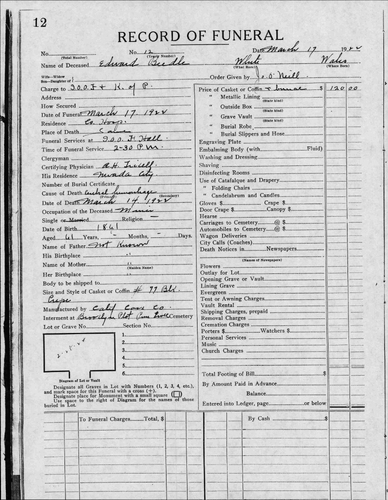 12
RECORD OF FUNERAL
No. 12 Date March 17 1922
(Serial Number) (Yearly Number)
Name of Deceased Edward Beedle White Wales
(What Race) (Where Born)
Wife—Widow
Son—Daughter of Order Given by O'Neill
Charge to I.O.O.F & K. of P.
Address
How Secured
Date of Funeral March 17 1922
Residence Co. Hosp.
Place of Death Same
Funeral Services at I.O.O.F Hall
Time of Funeral Service 2-30 P.M.
Clergyman
Certifying Physician
His Residence Nevada City
Number of Burial Certificate
Cause of Death
Date of Death March 14 1922
Occupation of the Deceased Miner
Single or Married Religion
Date of Birth 1861
Aged 61 Years, Months Days
Name of Father Not Known
His Birthplace "
Name of Mother "
(Maiden Name)
Her Birthplace "
Body to be shipped to
Size and Style of Casket or Coffin # 99 Blk.
Crepe
Manufactured by Calif Cas Co.
Interment at Cemetery
Lot or Grave No. Section No.
1.
2.
3.
4.
5.
6.
Diagram of Lot or Vault
Designate all Graves in Lot with Numbers (1, 2, 3, 4, etc.),
and mark space for this Funeral with a cross (+).
Designate place for Monument with a small square
Use space to the right of Diagram for names of those
buried in Lot.
Price of Casket or Coffin & burial $ 150 00
" Metallic Lining
" Outside Box
" Grave Vault
" Burial Robe
" Burial Slippers and Hose
Engraving Plate
Embalming Body (with Fluid)
Washing and Dressing
Shaving
Disinfecting Rooms
Use of Catafalque and Drapery
" Folding Chairs
" Candelabrum and Candles
Gloves $ Crepe $
Door Crape $ Canopy $
Hearse
Carriages to Cemetery @ $
Automobiles to Cemetery @ $
Wagon Deliveries
City Calls (Coaches)
Death Notices in Newspapers
(Names of Newspapers)
Flowers
Outlay for Lot
Opening Grave or Vault
Lining Grave
Evergreen
Tent or Awning Charges
Vault Rental
Shipping Charges, prepaid
Removal Charges
Cremation Charges
Porters $ Watchers $
Personal Services
Music
Church Charges
Total Footing of Bill $
By Amount Paid in Advance
Balance
Entered into Ledger, page or below
To Funeral Charges Total, $ By Cash $